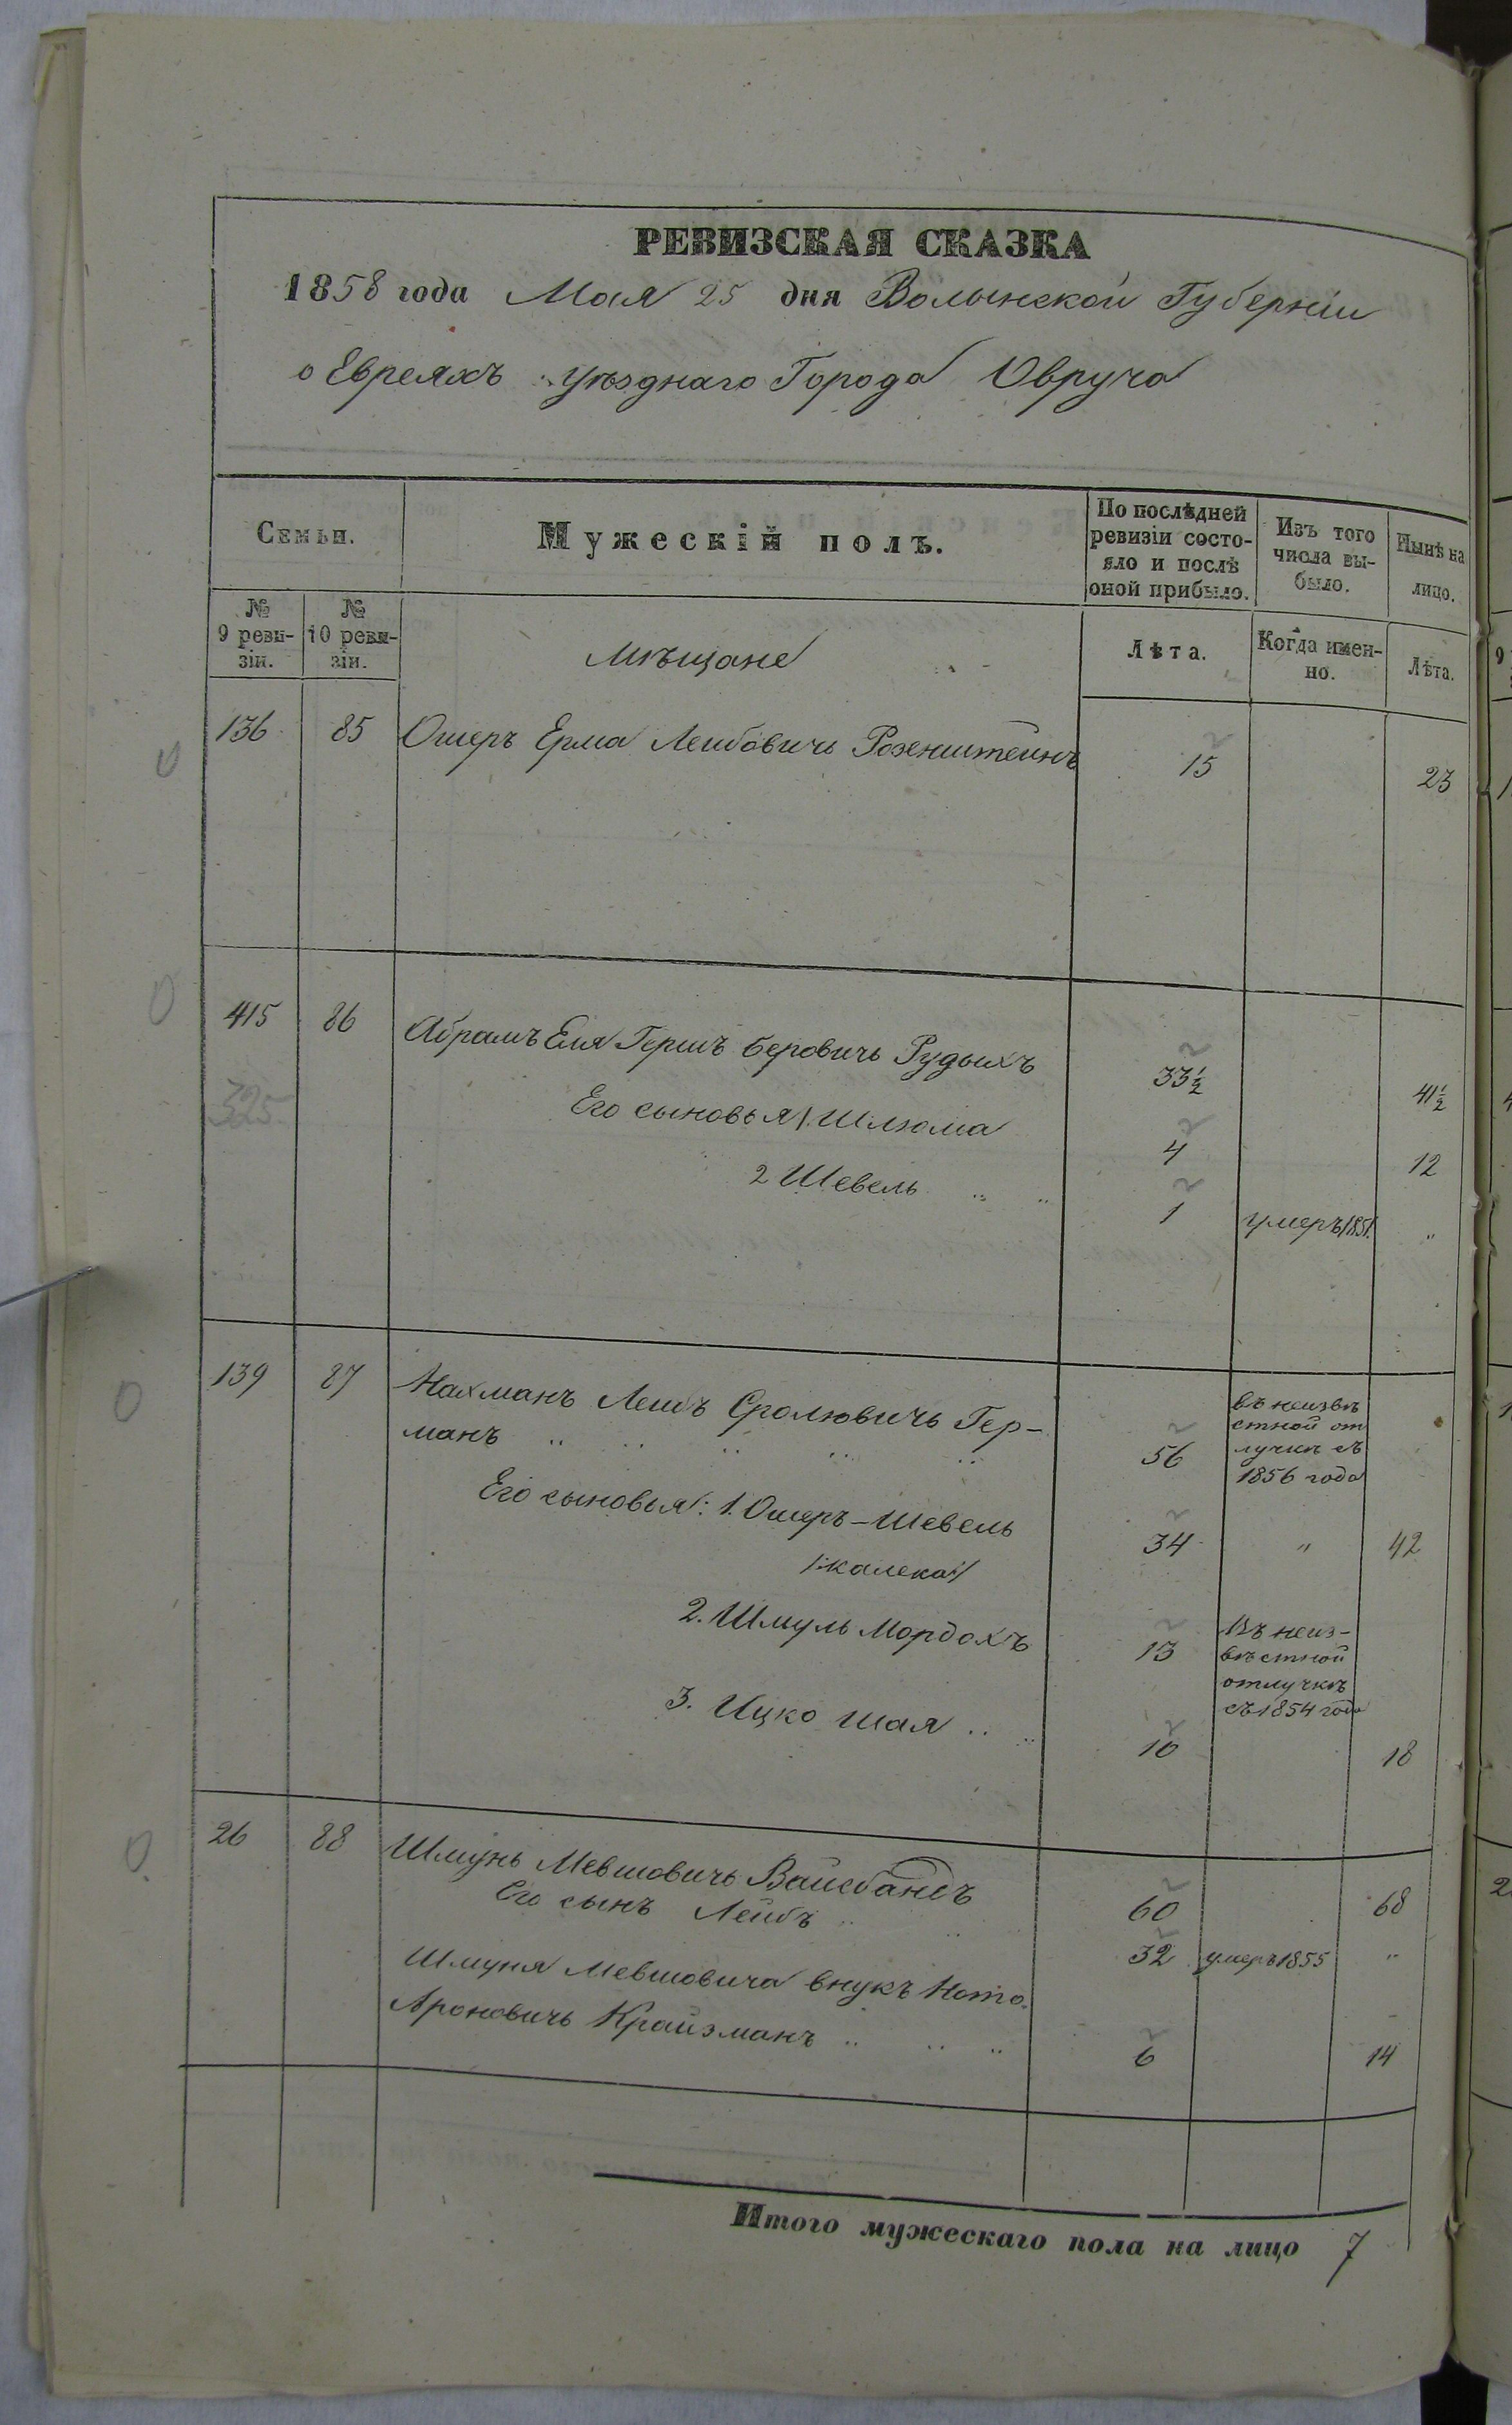 РЕВИЗСКАЯ СКАЗКА
1858 года Мая 25 дня Волынской Губерніи
о Евреяхъ уѣзднаго Города Овруча
Семьи. Мужескій полъ. По послѣдней ревизіи состояло и послѣ оной прибыло. Изъ того числа выбыло. Нынѣ на лицо.
№ 9 ревизіи. № 10 ревизіи. Мѣщане Лѣта. Когда именно. Лѣта.
136 85 Ошеръ Ерма Лейбовичь Розенштейнъ 15 23
415 86 Абрамъ Еля Гершъ Беровичь Рудыхъ 33½ 41½
325
Его сыновья 1. Шлюма 4 12
2 Шевель „ „ 1 умеръ 1851. „
139 87 Нахманъ Лейбъ Сролювичь Гер-
манъ „ „ „ „ „ 56 въ неизвѣ
стной от
лучкѣ съ
1856 года
Его сыновья: 1. Ошеръ-Шевель 34 „ 42
/:калека:/
2. Шмуль Мордохъ 13 Въ неиз-
вѣстной
отлучкѣ
съ 1854 года
3. Ицко Шая „ „ 10 18
26 88 Шмунь Мевшовичь Вайсбандъ 60 68
Его сынъ Лейбъ „ „ 32 умеръ 1855 „
Шмуня Мевшовича внукъ Ното
Ароновичь Крайзманъ „ „ „ 6 14
Итого мужескаго пола на лицо 7